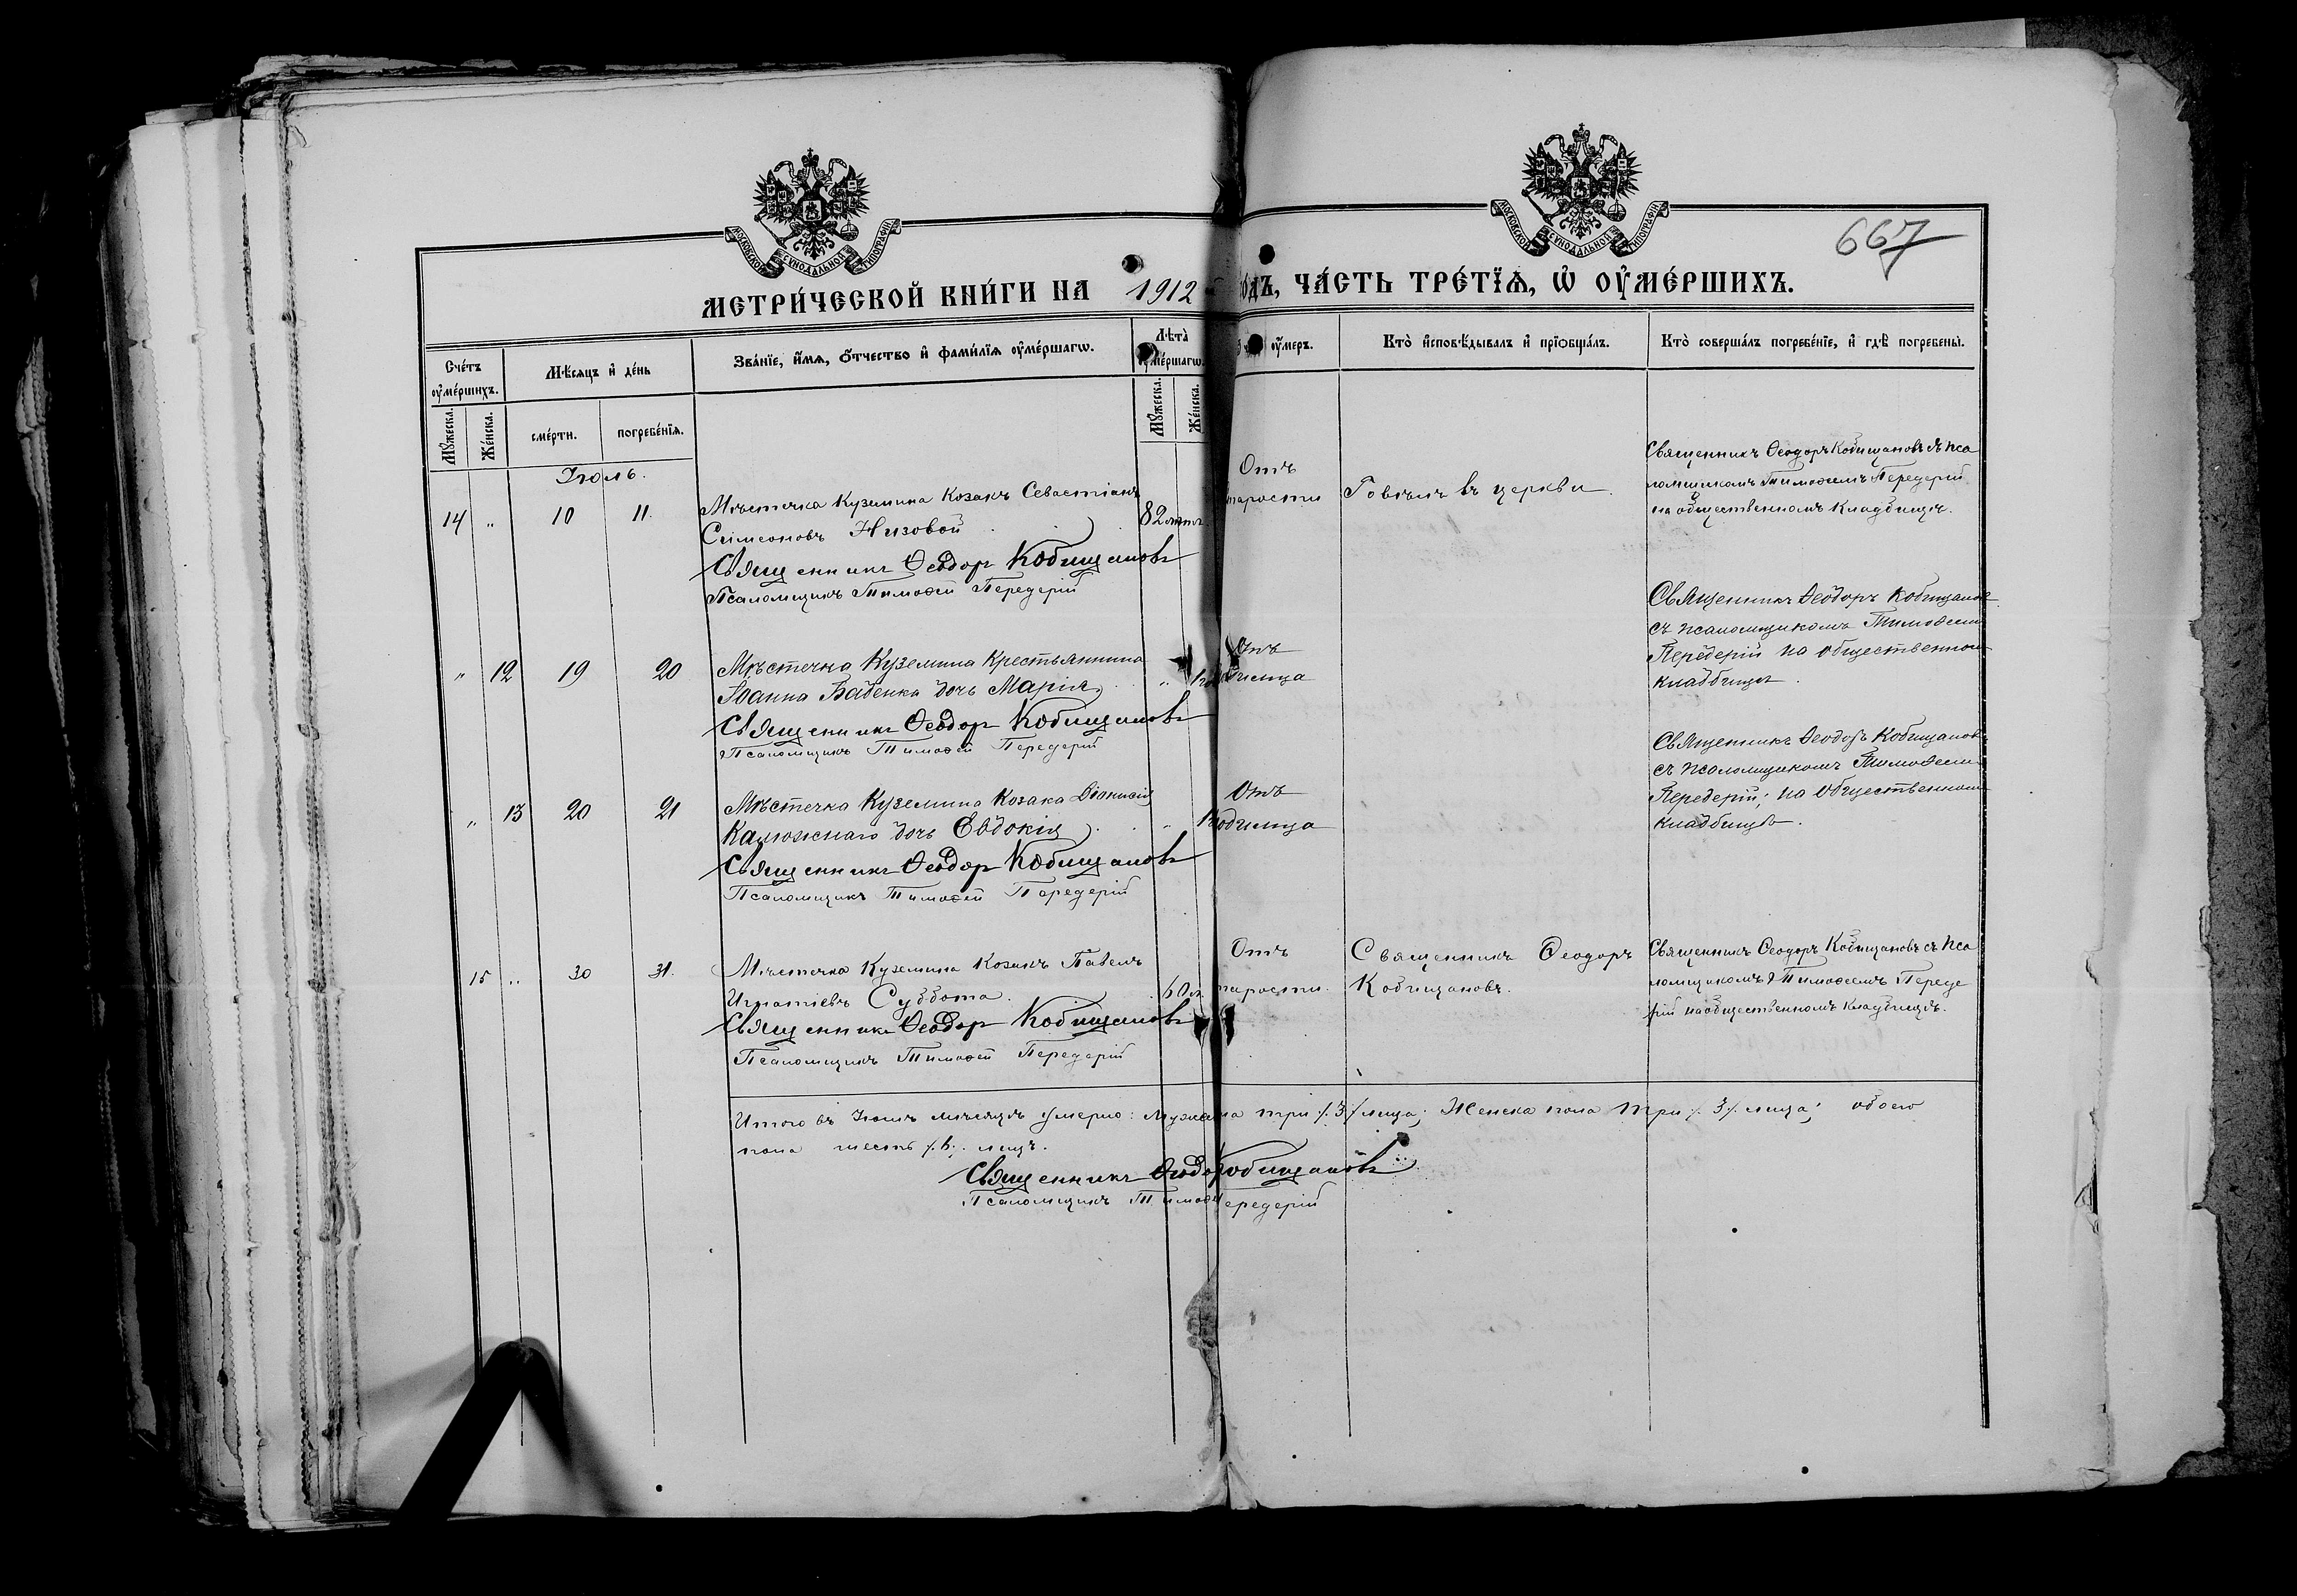 МОСКОВСКОЙ СѴНОДАЛЬНОЙ ТИПОГРАФІИ
МОСКОВСКОЙ СѴНОДАЛЬНОЙ ТИПОГРАФІИ
667
МЕТРИ́ЧЕСКОЙ КНИ́ГИ НА 1912 го́дъ, ЧА́СТЬ ТРЕ́ТЇѦ, Ѡ҆ ОУ҆МЕ́РШИХЪ.
Сче́тъ оу҆ме́ршихъ.
Мѣ́сяцъ и҆ де́нь
Зва́нїе, и҆́мѧ, ѻ҆́тчество и҆ фами́лїѧ оу҆ме́ршагѡ.
Лѣта̀ оу҆ме́ршагѡ.
оу҆́меръ.
Кто̀ и҆сповѣ́дывалъ и҆ прїѡбща́лъ.
Кто̀ соверша́лъ погребе́нїе, и҆ гдѣ̀ погребены̀.
Мꙋ́жеска.
Же́нска.
сме́рти.
погребе́нїѧ.
Мꙋ́жеска.
Же́нска.
Іюль.
14 „ 10 11. Мѣстечка Куземина Козакъ Севастіанъ
Симеоновъ Низовой 82 лѣтъ
Священникъ Ѳеодоръ Кобищановъ
Псаломщикъ Тимоѳей Передерій
Отъ
старости
Говѣлъ въ церкви.
Священникъ Ѳеодоръ Кобищановъ съ пса
ломщикомъ Тимоѳеемъ Передерій
на общественномъ кладбищѣ.
„ 12 19 20 Мѣстечка Куземина крестьянина
Іоанна Бабенка дочь Марія
Священникъ Ѳеодоръ Кобищановъ
Псаломщикъ Тимоѳей Передерій
Отъ
родимца
Священникъ Ѳеодоръ Кобищановъ
съ псаломщикомъ Тимоѳеемъ
Передерій на общественномъ
кладбищѣ.
„ 13 20 21 Мѣстечка Куземина Козака Діонисія
Калюжнаго дочь Евдокія
Священникъ Ѳеодоръ Кобищановъ
Псаломщикъ Тимоѳей Передерій
Отъ
родимца
Священникъ Ѳеодоръ Кобищановъ
съ псаломщикомъ Тимоѳеемъ
Передерій; на общественномъ
кладбищѣ.
15 „ 30 31. Мѣстечка Куземина Козакъ Павелъ
Игнатіевъ Суббота. 60 л.
Священникъ Ѳеодоръ Кобищановъ
Псаломщикъ Тимоѳей Передерій
Отъ
старости.
Священникъ Ѳеодоръ
Кобищановъ.
Священникъ Ѳеодоръ Кобищановъ съ пса
ломщикомъ Тимоѳеемъ Переде
рій на общественномъ кладбищѣ.
Итого въ Іюлѣ мѣсяцѣ умерло: мужска пола три /.3/. лица; Женска пола три /.3/. лица; обоего
пола шесть /.6./. лицъ.
Священникъ Ѳеодоръ Кобищановъ
Псаломщикъ Тимоѳей Передерій